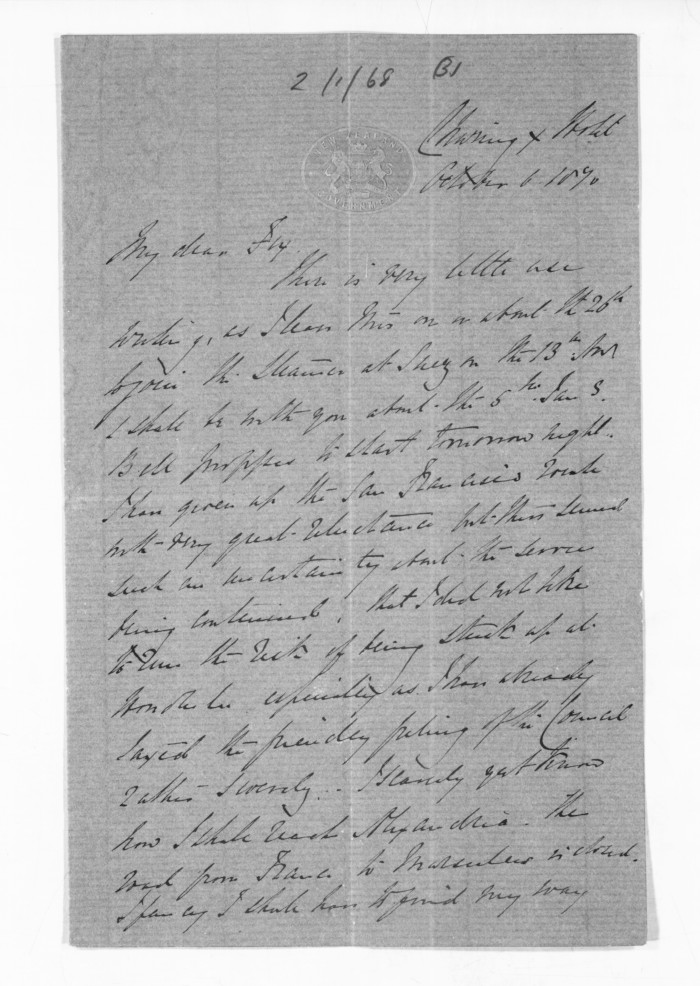 2/1/68 B1
Charing X Hotel
October 6 1870
My dear Fox.
There is very little use
writing, as I leave this on or about the 26th
to join the Steamer at Suez on the 13th Nov
I shall be with you about the 5th Jan 3.
Bell proposes to start tomorrow night.
I have given up the San Francisco route
with very great reluctance but there seemed
such an uncertainty about the service
being continued, that I did not like
to run the risk of being stuck up at
Honolulu especially as I have already
taxed the friendly feeling of the Council
rather severely. I scarcely yet know
how I shall reach Alexandria. The
road from France to Marseilles is closed.
I fancy I shall have to find my way